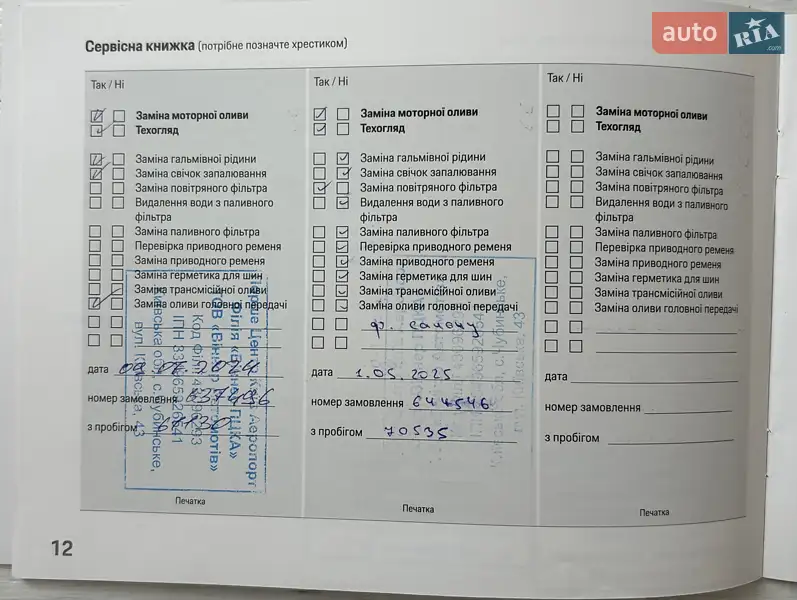 auto RIA .com
Сервісна книжка (потрібне позначте хрестиком)
Так / Ні
Заміна моторної оливи
Техогляд
Заміна гальмівної рідини
Заміна свічок запалювання
Заміна повітряного фільтра
Видалення води з паливного
фільтра
Заміна паливного фільтра
Перевірка приводного ременя
Заміна приводного ременя
Заміна герметика для шин
Заміна трансмісійної оливи
Заміна оливи головної передачі
дата
номер замовлення
з пробігом
Печатка
Так / Ні
Заміна моторної оливи
Техогляд
Заміна гальмівної рідини
Заміна свічок запалювання
Заміна повітряного фільтра
Видалення води з паливного
фільтра
Заміна паливного фільтра
Перевірка приводного ременя
Заміна приводного ременя
Заміна герметика для шин
Заміна трансмісійної оливи
Заміна оливи головної передачі
ф. салону
дата 1.05.2025
номер замовлення 644546
з пробігом 70535
Печатка
Так / Ні
Заміна моторної оливи
Техогляд
Заміна гальмівної рідини
Заміна свічок запалювання
Заміна повітряного фільтра
Видалення води з паливного
фільтра
Заміна паливного фільтра
Перевірка приводного ременя
Заміна приводного ременя
Заміна герметика для шин
Заміна трансмісійної оливи
Заміна оливи головної передачі
дата
номер замовлення
з пробігом
Печатка
12